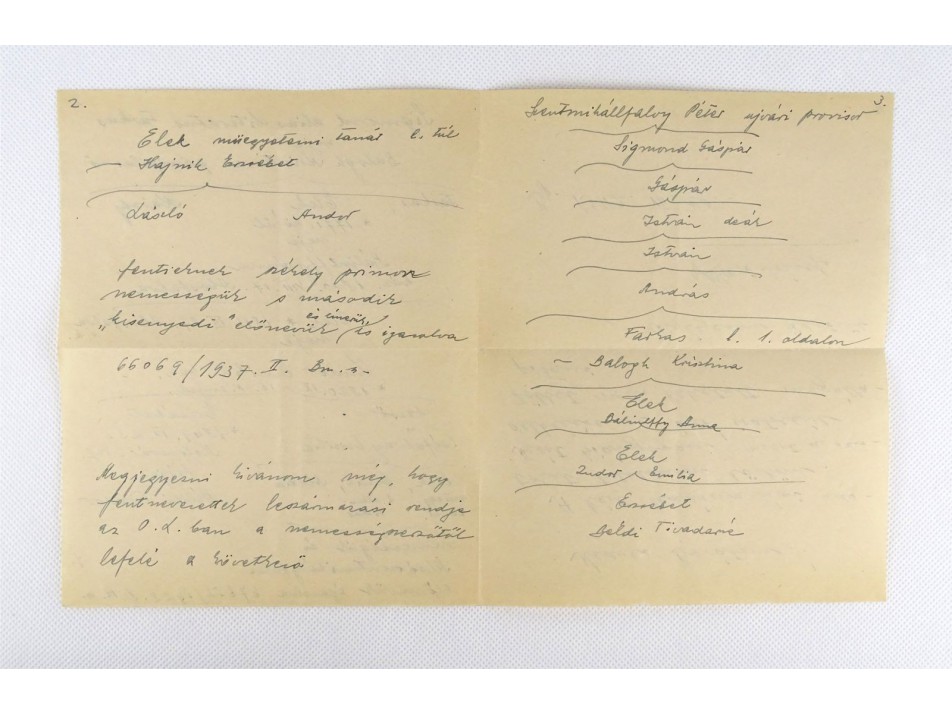 2.
Elek műegyetemi tanár l. túl
~ Hajnik Erzsébet
László Andor
fentieknek székely primor
nemességük s második
és címerük
„kisenyedi" előnevük is igazolva
66069/1937. II. Bm. n.
Megjegyezni kívánom még, hogy
fentnevezettek leszármazási rendje
az O. L. ban a nemességszerzőtől
lefelé a következő
3.
Szentmihállfalvy Péter ujvári provisor
Sigmond Gáspár
Gáspár
István deák
István
András
Farkas l. 1. oldalon
~ Balogh Krisztina
Elek
Bálintffy Anna
Elek
Zudor Emilia
Erzsébet
Béldi Tivadarné